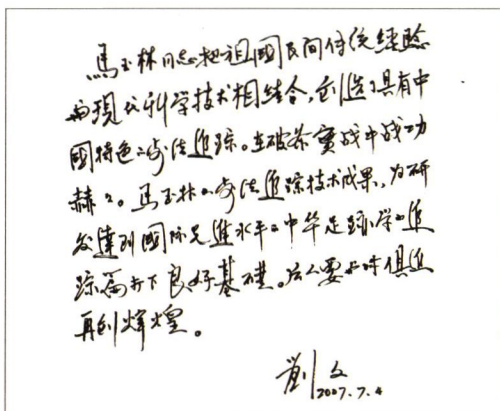 馬玉林同志把祖國民间传统經驗
与現代科学技术相结合,创造了具有中
國特色的步法追踪。在破案實战中战功
赫々。馬玉林的步法追踪技术成果,为研
发達到國际先進水平的中华足跡学的追
踪篇打下良好基礎。后人要与时俱進
再创辉煌。
劉文
2007.7.4